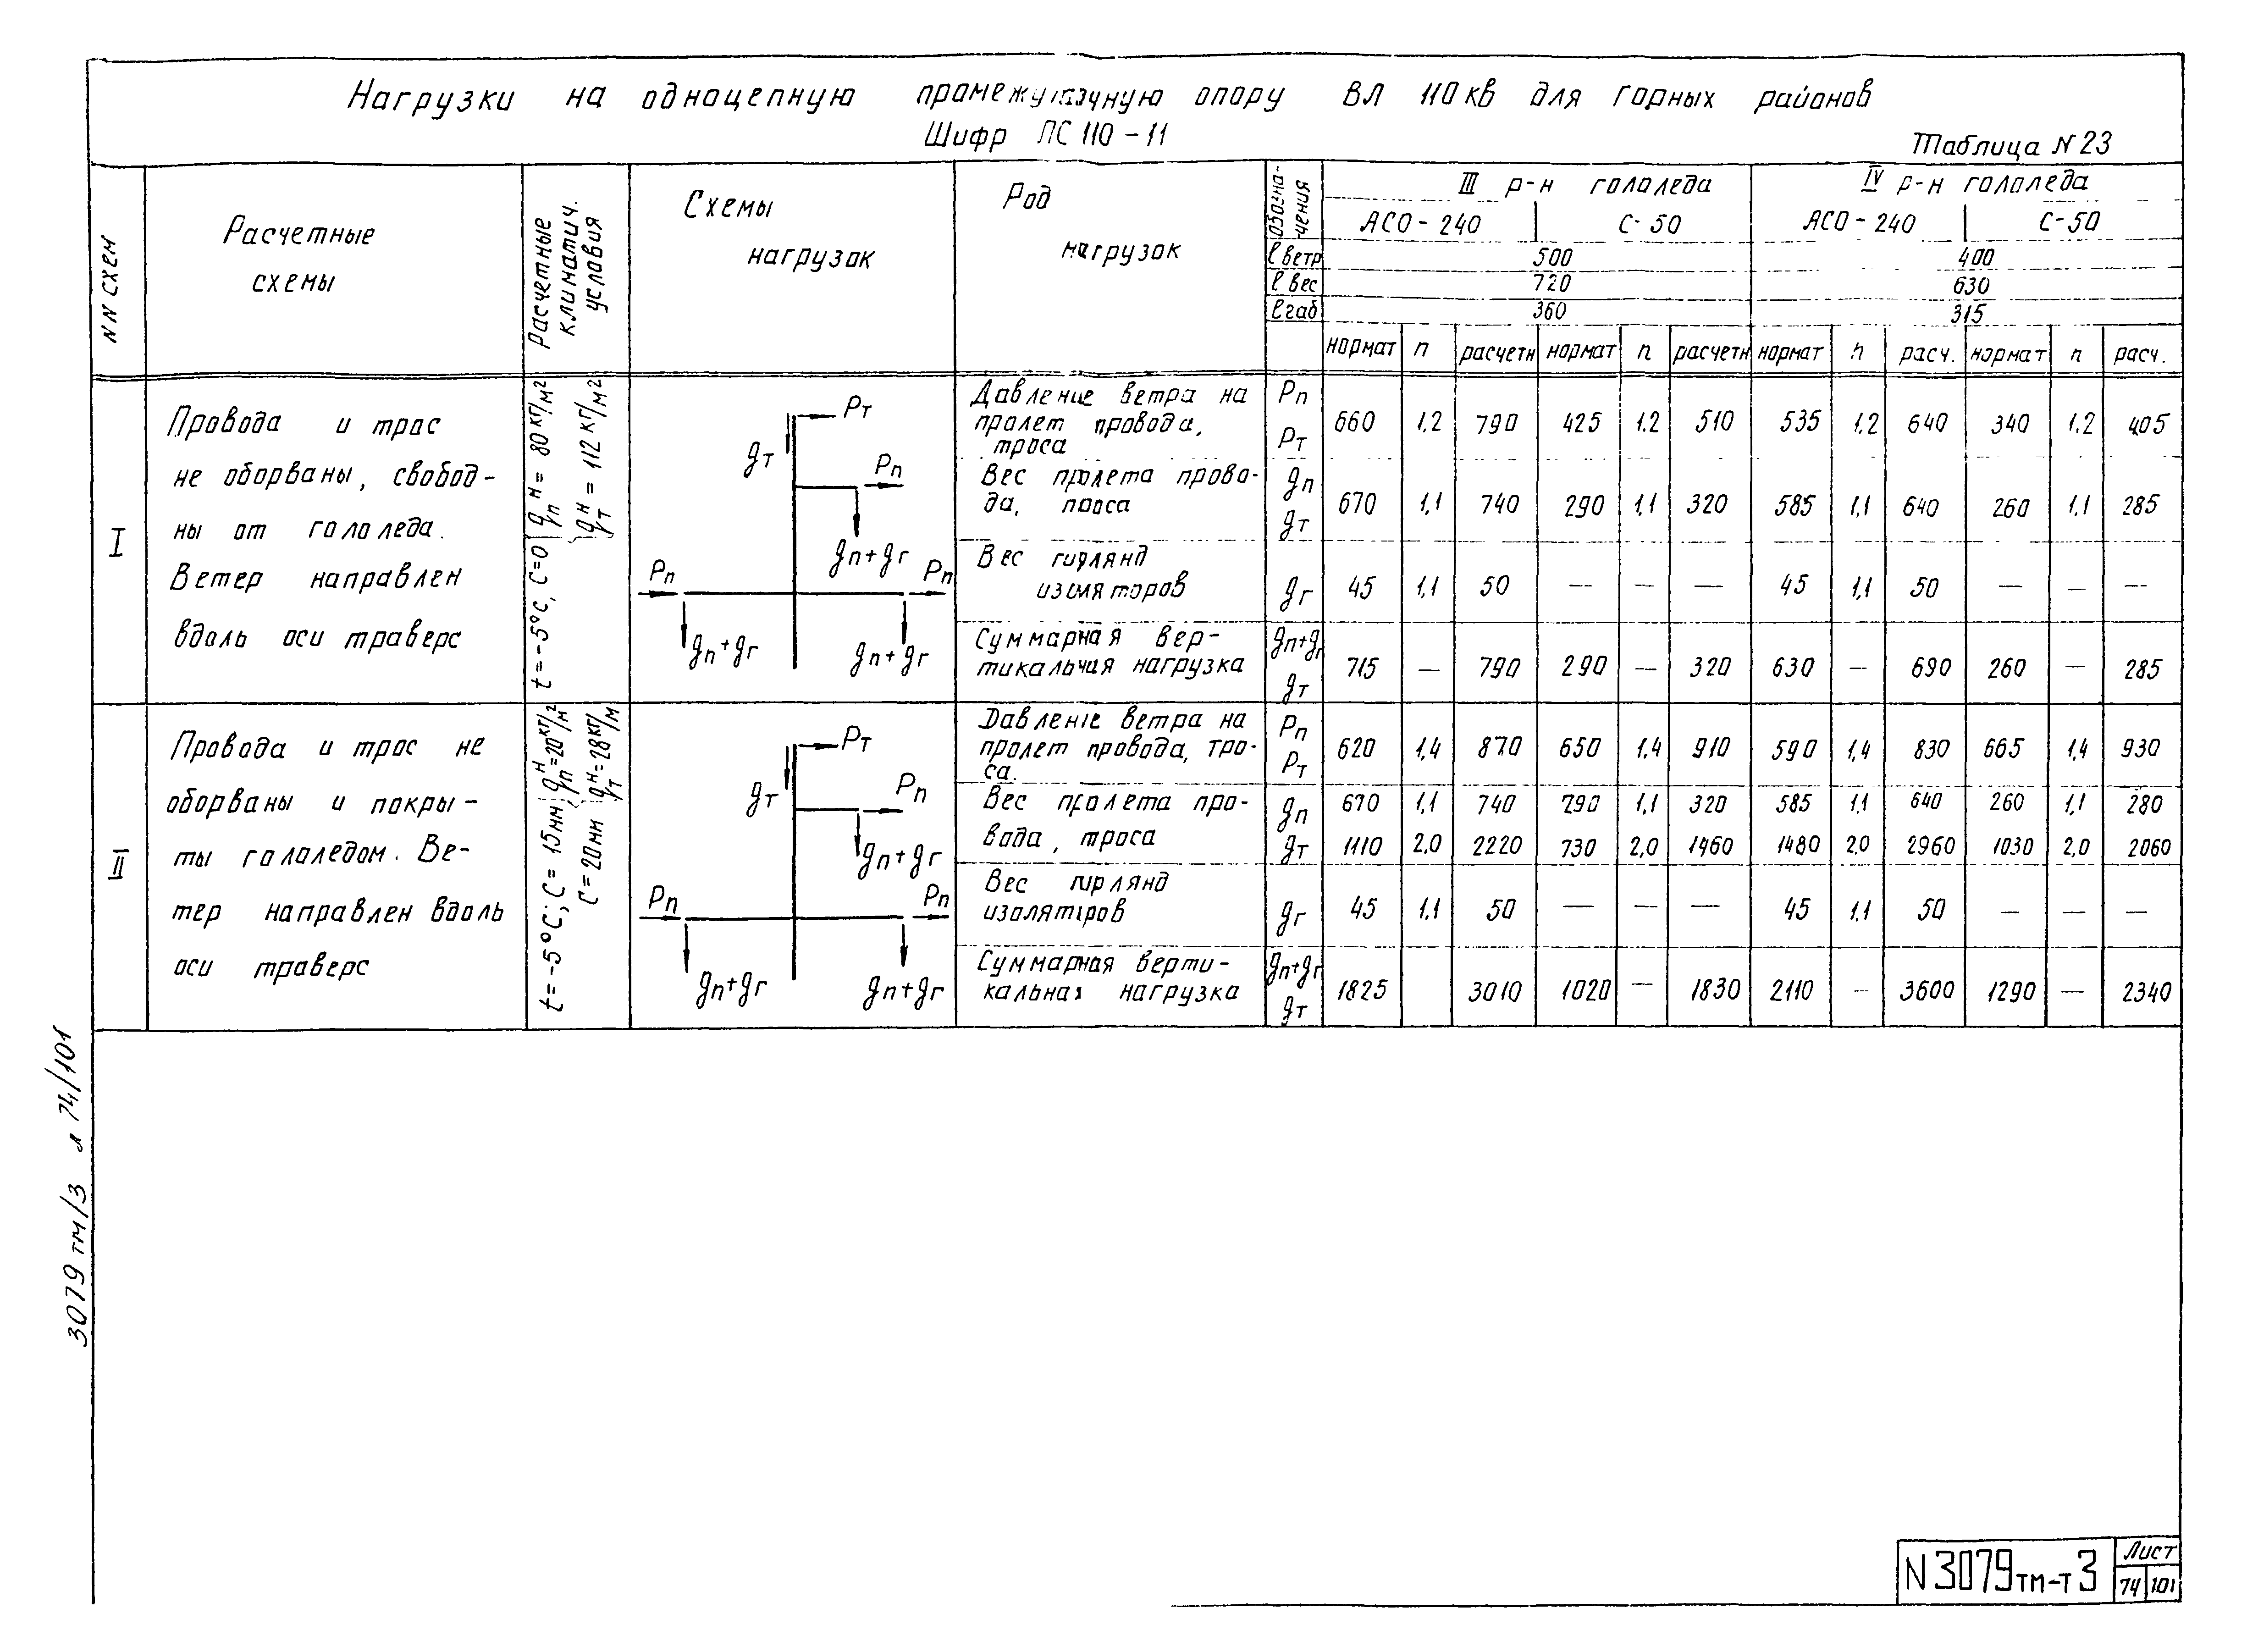 Нагрузки на одноцепную промежуточную опору ВЛ 110 кв для горных районов
Шифр ПС 110-11
Таблица N 23
NN схем
Расчетные
схемы
Расчетные
климатич.
условия
Схемы
нагрузок
Род
нагрузок
Обозна-
чения
III р-н гололеда
IV р-н гололеда
АСО-240 С-50 АСО-240 С-50
ℓ ветр 500 400
ℓ вес 720 630
ℓ габ 360 315
нормат n расчетн нормат n расчетн нормат n расч. нормат n расч.
I
Провода и трос
не оборваны, свобод-
ны от гололеда.
Ветер направлен
вдоль оси траверс
t=-5°C, C=0 { qпᴴ = 80 кг/м²
qтᴴ = 112 кг/м²
Pт
gт
Pп
gп+gг
Pп
Pп
gп+gг
gп+gг
Давление ветра на
пролет провода,
троса
Pп
Pт
660 1.2 790 425 1.2 510 535 1.2 640 340 1.2 405
Вес пролета прово-
да,
gп
gт
670 1,1 740 290 1,1 320 585 1,1 640 260 1,1 285
Вес гирлянд
изоляторов
gг
45 1,1 50 — — — 45 1,1 50 — — —
Суммарная вер-
тикальная нагрузка
gп+gг
gт
715 — 790 290 — 320 630 — 690 260 — 285
II
Провода и трос не
оборваны и покры-
ты гололедом. Ве-
тер направлен вдоль
оси траверс
t=-5°C; C=15мм { qпᴴ=20кг/м²
C=20мм { qтᴴ=28кг/м
Pт
gт
Pп
gп+gг
Pп
Pп
gп+gг
gп+gг
Давление ветра на
пролет провода, тро-
са.
Pп
Pт
620 1,4 870 650 1,4 910 590 1,4 830 665 1,4 930
Вес пролета про-
вода, троса
gп
gт
670 1,1 740 290 1,1 320 585 1,1 640 260 1,1 280
1110 2,0 2220 730 2,0 1460 1480 2,0 2960 1030 2,0 2060
Вес гирлянд
изоляторов
gг
45 1.1 50 — — — 45 1.1 50 — — —
Суммарная верти-
кальная нагрузка
gп+gг
gт
1825 3010 1020 — 1830 2110 — 3600 1290 — 2340
3079 тм/3 л 74/101
N 3079тм-т3
Лист
74 101